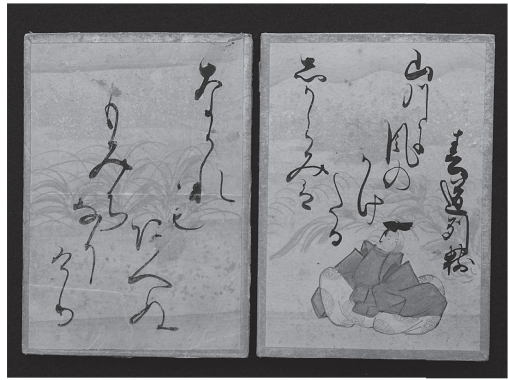 春道列樹
山川に
風の
かけ
たる
しからみは
なかれ
も
あへぬ
もみち
なり
けり